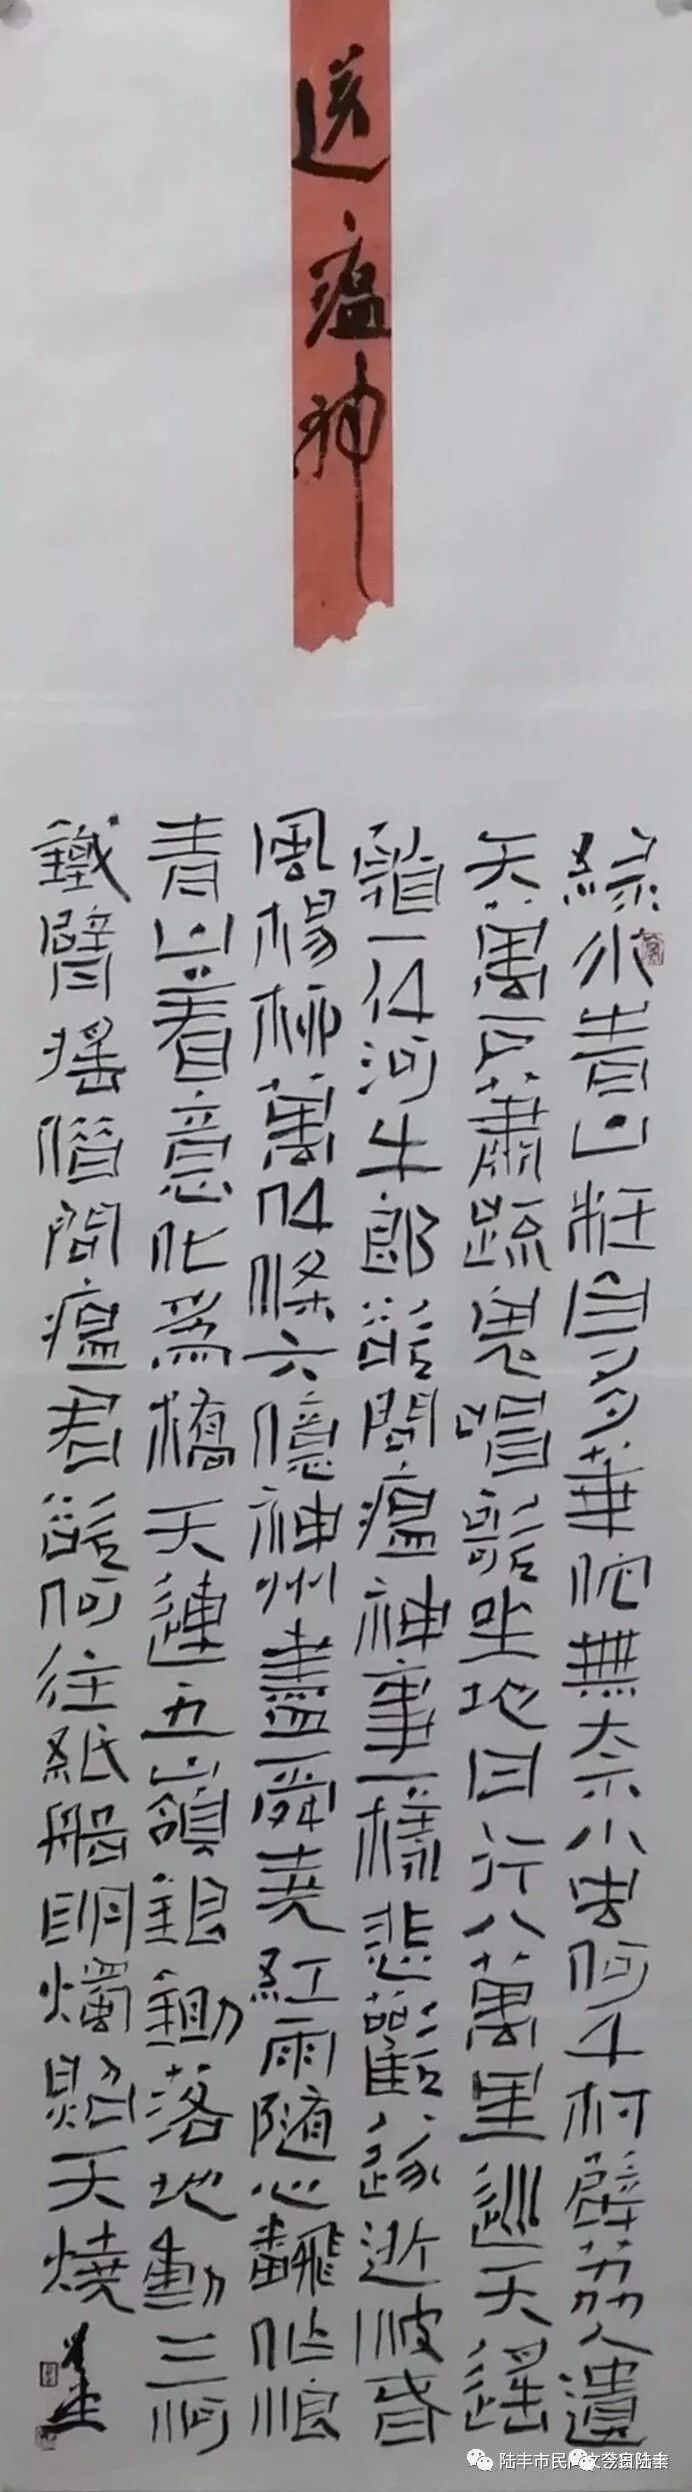 送瘟神
綠水青山枉自多華陀無奈小虫何千村薜荔人遺
矢萬戶蕭疏鬼唱歌坐地日行八萬里巡天遙
一仟河牛郎欲問瘟神事一樣悲歡逐逝波春
風楊柳萬仟條六億神州盡舜堯紅雨隨心飜作浪
青山着意化為橋天連五嶺銀鋤落地動三河
鐵臂搖借問瘟君欲何往紙船明燭照天燒
陆丰市民间文